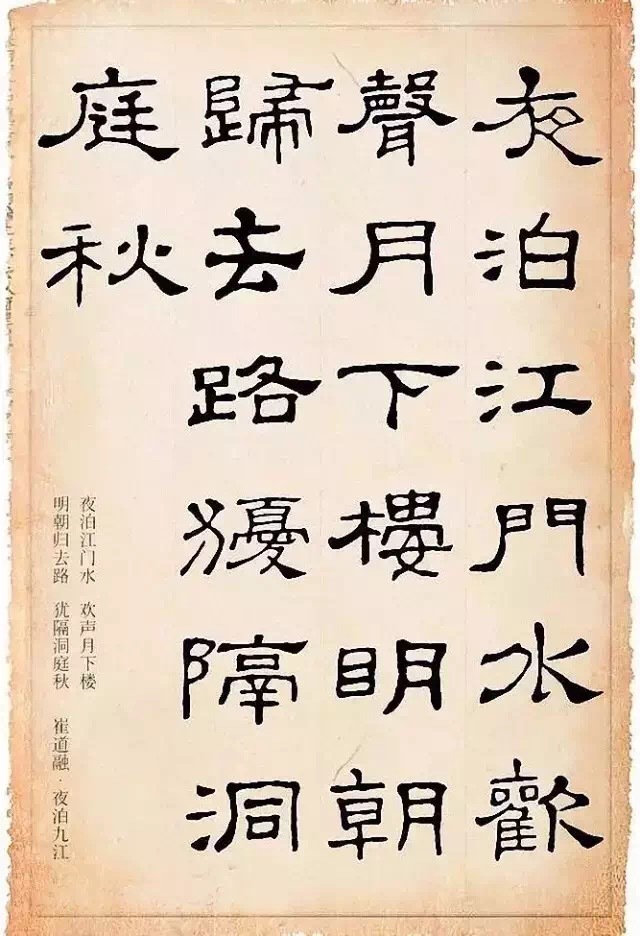 夜泊江門水歡
聲月下樓明朝
歸去路擾隔洞
庭秋
夜泊江门水 欢声月下楼
明朝归去路 犹隔洞庭秋 崔道融·夜泊九江